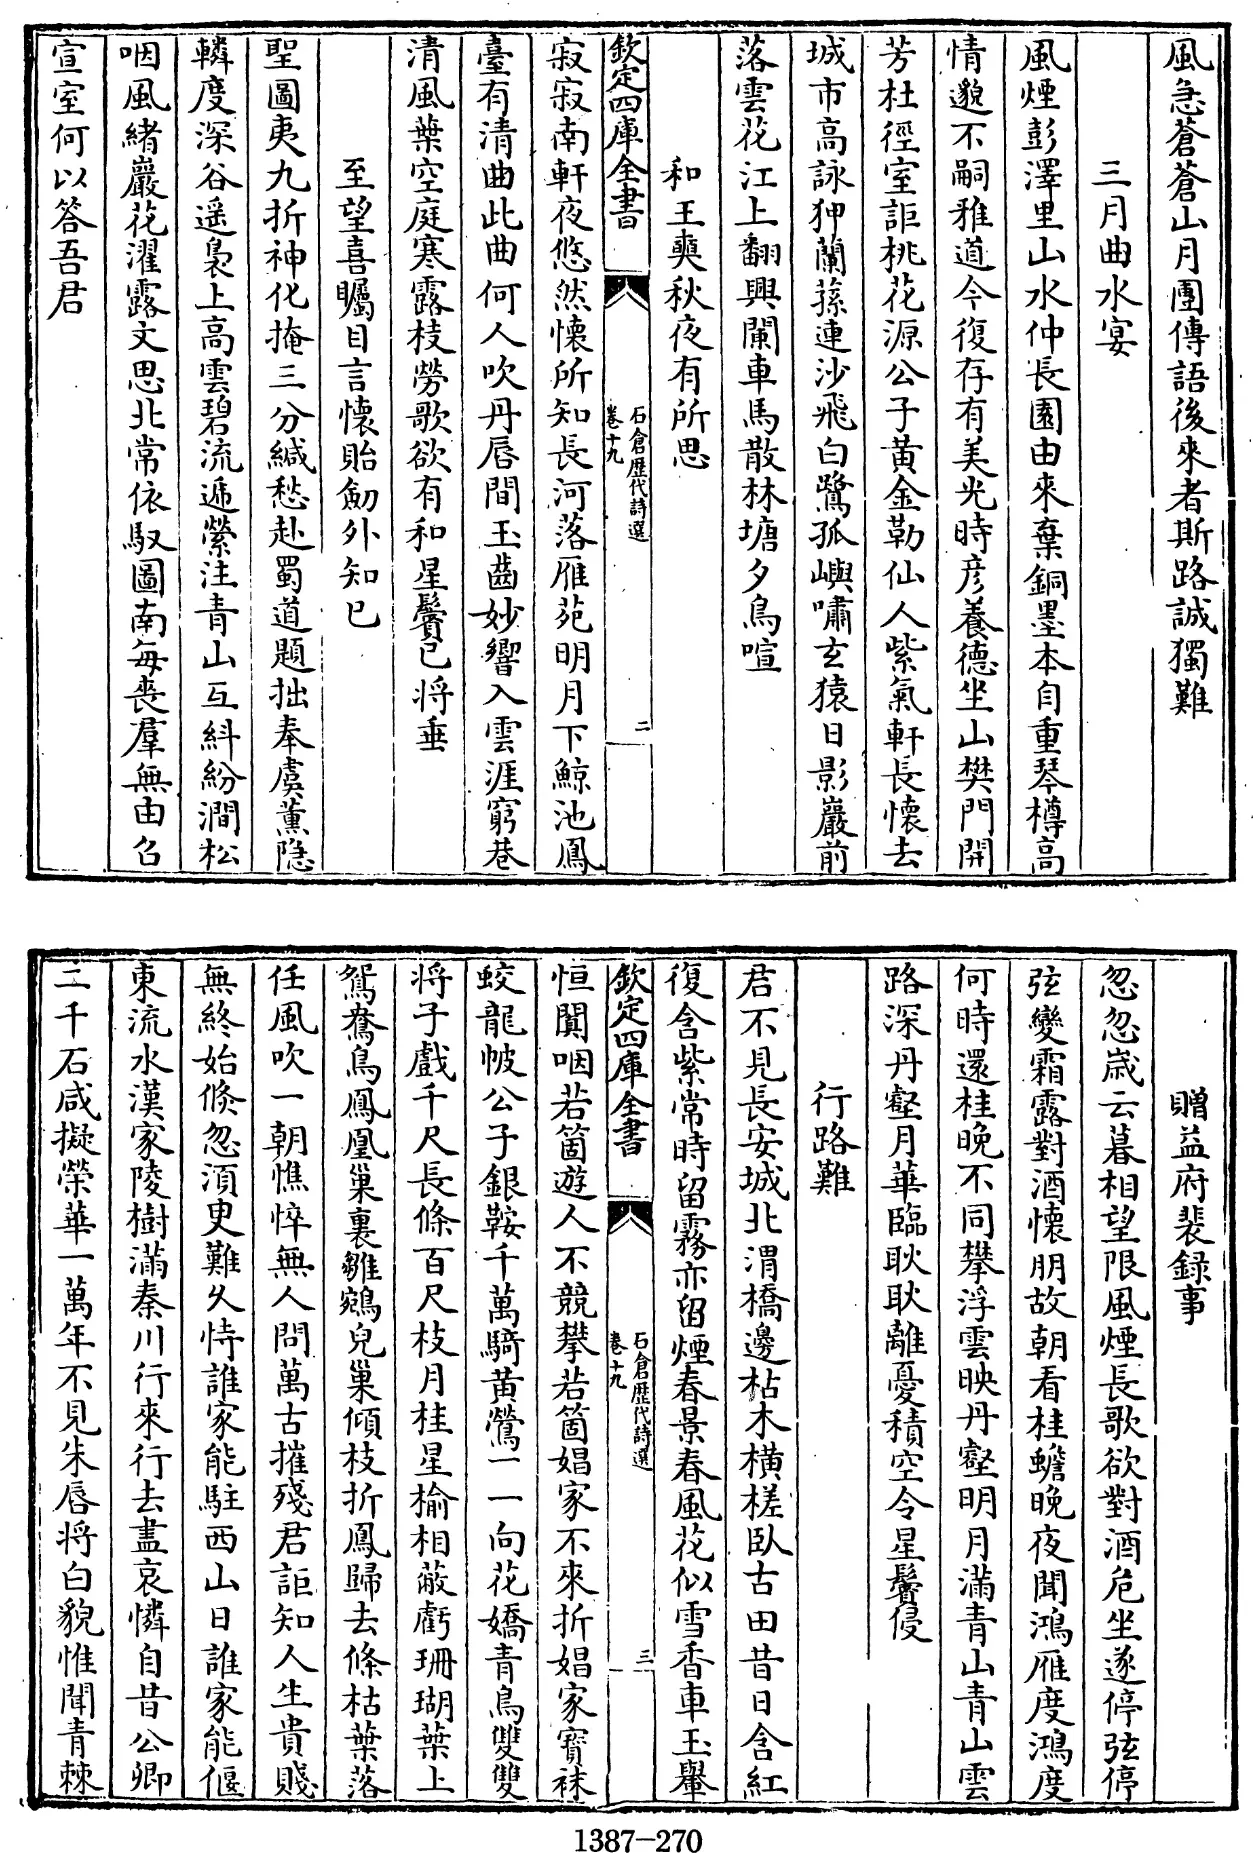 風急蒼蒼山月團傳語後來者斯路誠獨難
三月曲水宴
風煙彭澤里山水仲長園由來棄銅墨本自重琴樽高
情邈不嗣雅道今復存有美光時彦養德坐山樊門開
芳杜徑室詎桃花源公子黄金勒仙人紫氣軒長懷去
城市高詠狎蘭蓀連沙飛白鷺孤嶼嘯玄猿日影巖前
落雲花江上翻興闌車馬散林塘夕鳥喧
和王奭秋夜有所思
欽定四庫全書
石倉歴代詩選
卷十九
二
寂寂南軒夜悠然懷所知長河落雁苑明月下鯨池鳳
臺有清曲此曲何人吹丹唇間玉齒妙響入雲涯窮巷
清風葉空庭寒露枝勞歌欲有和星鬢已将垂
至望喜矚目言懷貽劒外知已
聖圖夷九折神化掩三分緘愁赴蜀道題拙奉虞薰隐
轔度深谷遥裊上高雲碧流遞縈注青山互糾紛澗松
咽風緒巖花濯露文思北常依馭圖南每喪羣無由召
宣室何以答吾君
贈益府裴録事
忽忽歲云暮相望限風煙長歌欲對酒危坐遂停弦停
弦變霜露對酒懷朋故朝看桂蟾晚夜聞鴻雁度鴻度
何時還桂晚不同攀浮雲映丹壑明月滿青山青山雲
路深丹壑月華臨耿耿離憂積空令星鬢侵
行路難
君不見長安城北渭橋邊枯木橫槎臥古田昔日含紅
復含紫常時留霧亦留煙春景春風花似雪香車玉轝
欽定四庫全書
石倉歴代詩選
卷十九
三
恒闐咽若箇遊人不競攀若箇娼家不來折娼家寳袜
蛟龍帔公子銀鞍千萬騎黄鶯一一向花嬌青鳥雙雙
将子戲千尺長條百尺枝月桂星榆相蔽虧珊瑚葉上
鴛鴦鳥鳳凰巢裏雛鵷兒巢傾枝折鳳歸去條枯葉落
任風吹一朝憔悴無人問萬古摧殘君詎知人生貴賤
無終始倐忽須臾難久恃誰家能駐西山日誰家能堰
東流水漢家陵樹滿秦川行來行去盡哀憐自昔公卿
二千石咸擬榮華一萬年不見朱唇将白貌惟聞青棘
1387-270